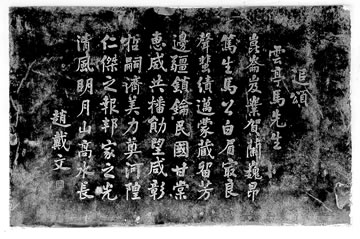 追頌
雲亭馬先生
崑崙岌嶪賀蘭巍昂
篤生馬公白眉㝡良
聲蜚績邁蒙藏留芳
邊疆鎖鑰民國甘棠
惠威共播勛望咸彰
哲嗣濟美力奠河隍
仁傑之報邦家之光
清風明月山高水長
趙戴文